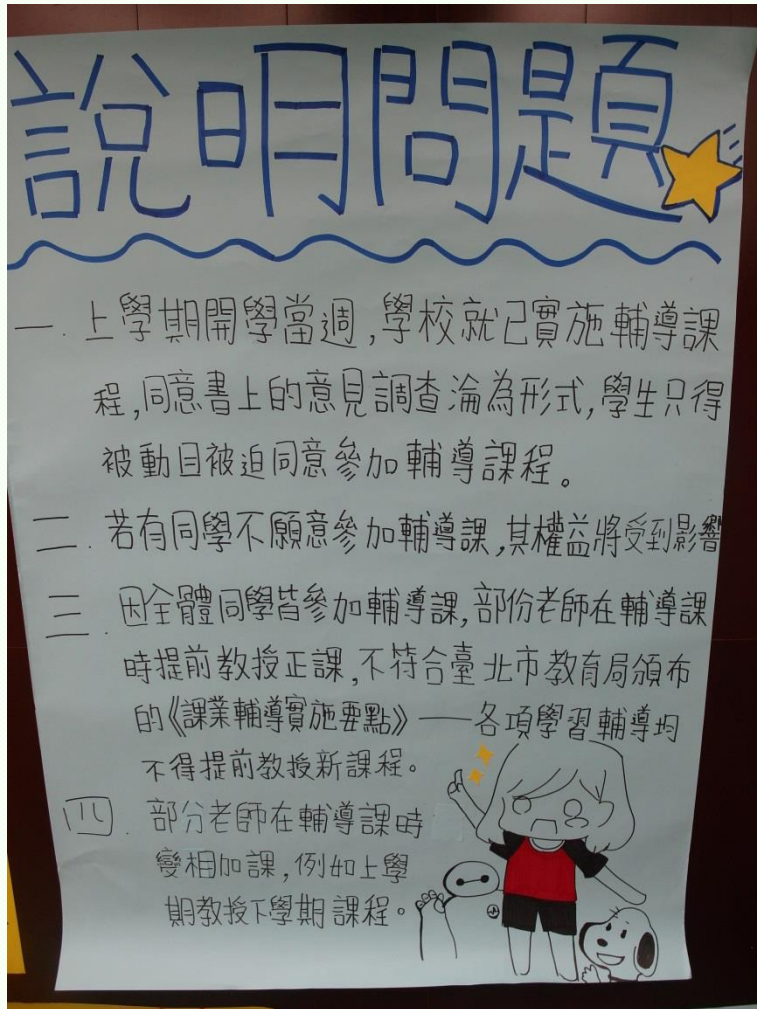 說明問題
一. 上學期開學當週,學校就已實施輔導課
程,同意書上的意見調查淪為形式,學生只得
被動且被迫同意參加輔導課程。
二. 若有同學不願意參加輔導課,其權益將受到影響
三. 因全體同學皆參加輔導課,部份老師在輔導課
時提前教授正課,不符合臺北市教育局頒布
的《課業輔導實施要點》──各項學習輔導均
不得提前教授新課程。
四. 部分老師在輔導課時
變相加課,例如上學
期教授下學期課程。